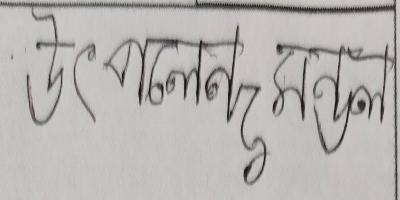 উৎপলেন্দু মণ্ডল